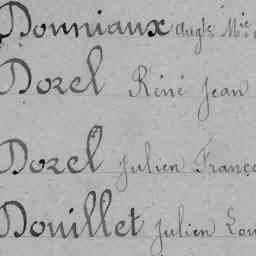 Donniaux Aug.te M.ie
Dorel Réné Jean
Dorel Julien Franço
Douillet Julien Lou